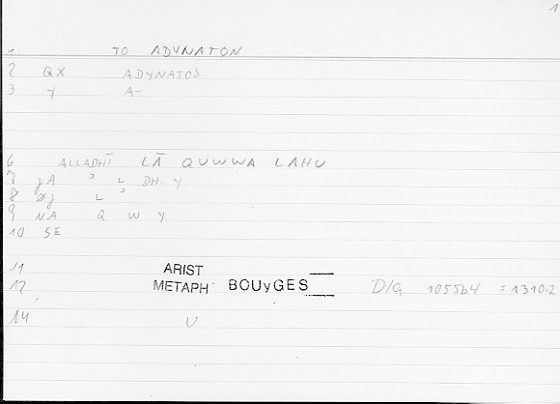 1
1 TO ADYNATON
2 QX ADYNATOS
3 Y A-
6 ALLADHĪ LĀ QUWWA LAHU
7 JA ʾ L DH Y
8 L ʾ
9 NA Q W Y
10 SE
11 ARIST
12 METAPH BOUYGES D/G 1055b4 = 1310.2
14 U